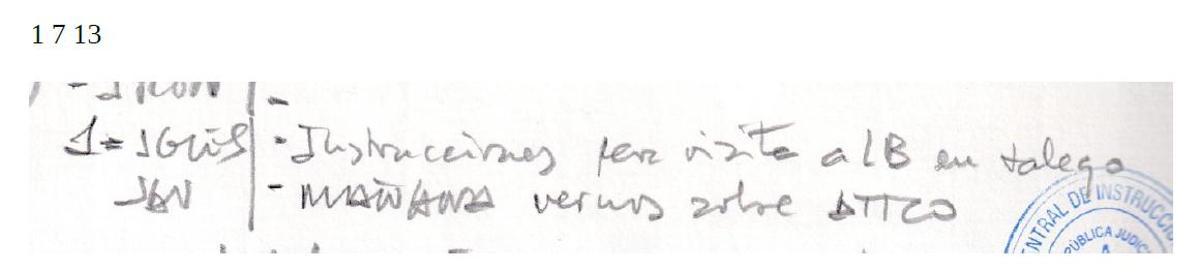 1 7 13
1 = IGLES - Instrucciones para visita a LB en talego
JAN - MAÑANA vernos sobre ATICO
CENTRAL DE INSTRUCCI
PÚBLICA JUDIC